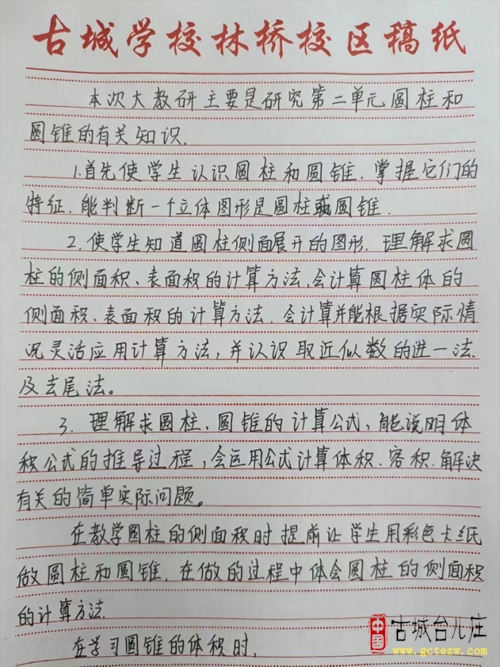 古城学校林桥校区稿纸
本次大教研主要是研究第二单元圆柱和
圆锥的有关知识.
1.首先使学生认识圆柱和圆锥.掌握它们的
特征.能判断一个立体图形是圆柱或圆锥.
2.使学生知道圆柱侧面展开的图形.理解求圆
柱的侧面积、表面积的计算方法.会计算圆柱体的
侧面积、表面积的计算方法.会计算并能根据实际情
况灵活应用计算方法,并认识取近似数的进一法
及去尾法。
3.理解求圆柱、圆锥的计算公式,能说明体
积公式的推导过程,会运用公式计算体积、容积.解决
有关的简单实际问题。
在教学圆柱的侧面积时提前让学生用彩色卡纸
做圆柱和圆锥.在做的过程中体会圆柱的侧面积
的计算方法.
在学习圆锥的体积时,
中国 古城台儿庄
www.gctezw.com